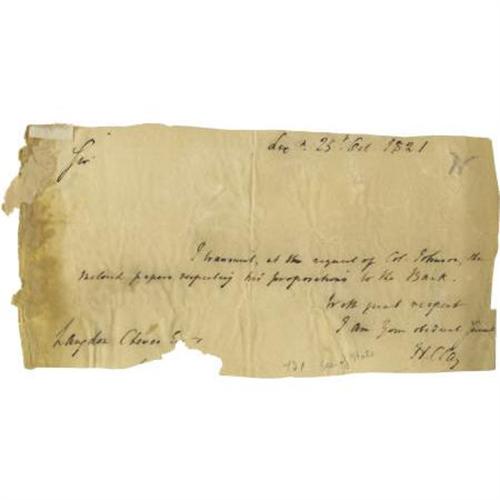 Lexn. 25t Oct 1821
Sir
I transmit, at the request of Col Johnson, the
inclosed papers respecting his propositions to the Bank.
With great respect
I am Your obedient Servant
H. Clay
Langdon Cheves Esqr
Sec. of State